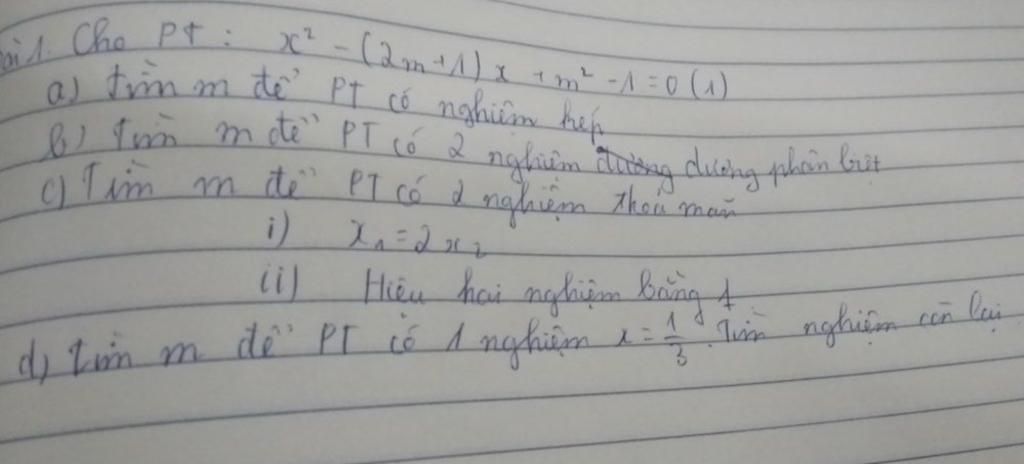 Bài 1. Cho PT : x² - (2m+1)x + m² - 1 = 0 (1)
a) tìm m để PT có nghiệm kép
b) tìm m để PT có 2 nghiệm dương phân biệt
c) Tìm m để PT có 2 nghiệm thoả mãn
i) x₁ = 2x₂
ii) Hiệu hai nghiệm bằng 1
d) tìm m để PT có 1 nghiệm x = 1/3. Tìm nghiệm còn lại